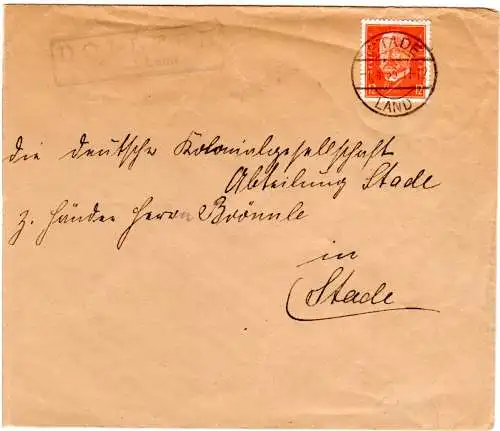 Land
STADE
LAND
12 12
die deutsche Kolonialgesellschaft
Abteilung Stade
z. Händen Herrn Brönnle
in
Stade